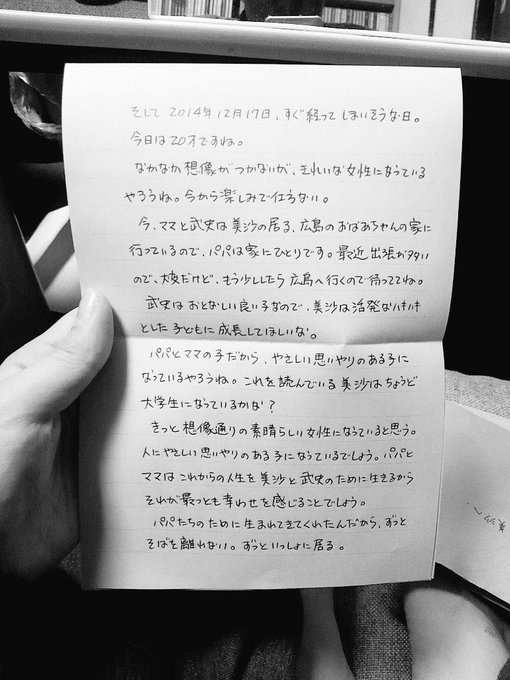 そして 2014年12月17日、すぐ経ってしまいそうな日。
今日は20才ですね。
なかなか想像がつかないが、きれいな女性になっている
やろうね。今から楽しみで仕方ない。
今、ママと武史は美沙の居る、広島のおばあちゃんの家に
行っているので、パパは家にひとりです。最近出張が多い
ので、大変だけど、もう少ししたら広島へ行くので待っててね。
武史はおとなしい良い子なので、美沙は活発なハキハキ
とした子どもに成長してほしいな。
パパとママの子だから、やさしい思いやりのある子に
なっているやろうね。これを読んでいる美沙はちょうど
大学生になっているかな?
きっと想像通りの素晴らしい女性になっていると思う。
人にやさしい思いやりのある子になっているでしょう。パパと
ママはこれからの人生を美沙と武史のために生きるから
それが最っとも幸わせを感じることでしょう。
パパたちのために生まれてきてくれたんだから、ずっと
そばを離れない。ずっといっしょに居る。